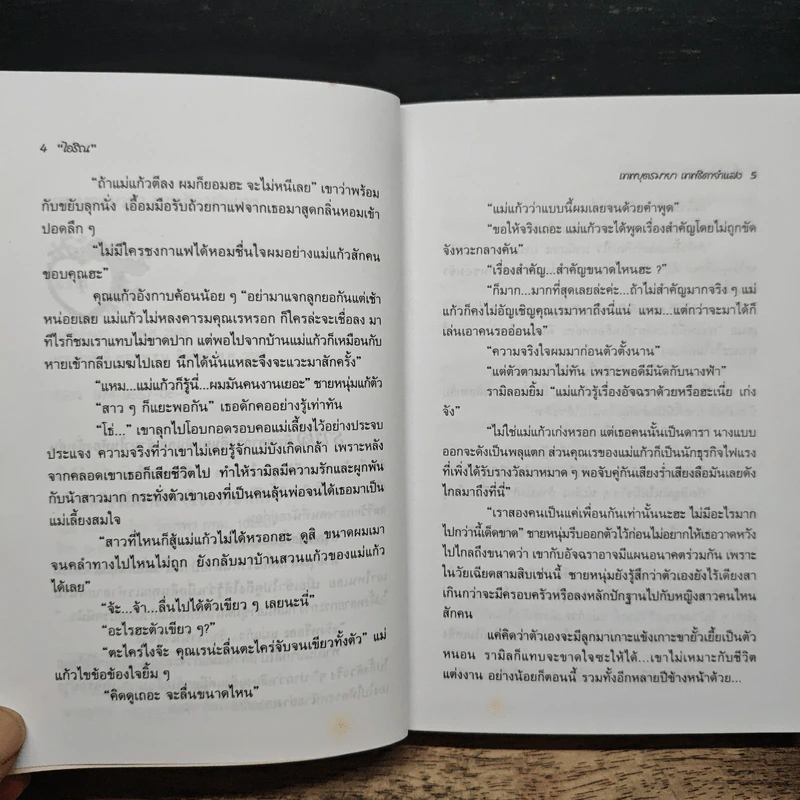 4 "ไอริณ"
"ถ้าแม่แก้วตีลง ผมก็ยอมฮะ จะไม่หนีเลย" เขาว่าพร้อม
กับขยับลุกนั่ง เอื้อมมือรับถ้วยกาแฟจากเธอมาสูดกลิ่นหอมเข้า
ปอดลึก ๆ
"ไม่มีใครชงกาแฟได้หอมชื่นใจผมอย่างแม่แก้วสักคน
ขอบคุณฮะ"
คุณแก้วอังกาบค้อนน้อย ๆ "อย่ามาแจกลูกยอกันแต่เช้า
หน่อยเลย แม่แก้วไม่หลงคารมคุณเรหรอก ก็ใครล่ะจะเชื่อลง มา
ทีไรก็ชมเราแทบไม่ขาดปาก แต่พอไปจากบ้านแม่แก้วก็เหมือนกับ
หายเข้ากลีบเมฆไปเลย นึกได้นั่นแหละจึงจะแวะมาสักครั้ง"
"แหม...แม่แก้วก็รู้นี่...ผมมันคนงานเยอะ" ชายหนุ่มแก้ตัว
"สาว ๆ ก็แยะพอกัน" เธอดักคออย่างรู้เท่าทัน
"โธ่..." เขาลุกไปโอบกอดรอบคอแม่เลี้ยงไว้อย่างประจบ
ประแจง ความจริงที่ว่าเขาไม่เคยรู้จักแม่บังเกิดเกล้า เพราะหลัง
จากคลอดเขาเธอก็เสียชีวิตไป ทำให้รามิลมีความรักและผูกพัน
กับน้าสาวมาก กระทั่งตัวเขาเองที่เป็นคนลุ้นพ่อจนได้เธอมาเป็น
แม่เลี้ยงสมใจ
"สาวที่ไหนก็สู้แม่แก้วไม่ได้หรอกฮะ ดูสิ ขนาดผมเมา
จนคลำทางไปไหนไม่ถูก ยังกลับมาบ้านสวนแก้วของแม่แก้ว
ได้เลย"
"จ้ะ...จ้า...ลื่นไปได้ตัวเขียว ๆ เลยนะนี่"
"อะไรฮะตัวเขียว ๆ?"
"ตะไคร่ไงจ๊ะ คุณเรน่ะลื่นตะไคร่จับจนเขียวทั้งตัว" แม่
แก้วไขข้อข้องใจยิ้ม ๆ
"คิดดูเถอะ จะลื่นขนาดไหน"
เทพบุตรมายา เทพธิดาจำแลง 5
"แม่แก้วว่าแบบนี้ผมเลยจนด้วยคำพูด"
"ขอให้จริงเถอะ แม่แก้วจะได้พูดเรื่องสำคัญโดยไม่ถูกขัด
จังหวะกลางคัน"
"เรื่องสำคัญ...สำคัญขนาดไหนฮะ ?"
"ก็มาก...มากที่สุดเลยล่ะค่ะ...ถ้าไม่สำคัญมากจริง ๆ แม่
แก้วก็คงไม่อัญเชิญคุณเรมาหาถึงนี่แน่ แหม...แต่กว่าจะมาได้ก็
เล่นเอาคนรออ่อนใจ"
"ความจริงใจผมมาก่อนตัวตั้งนาน"
"แต่ตัวตามมาไม่ทัน เพราะพอดีมีนัดกับนางฟ้า"
รามิลอมยิ้ม "แม่แก้วรู้เรื่องอัจฉราด้วยหรือฮะเนี่ย เก่ง
จัง"
"ไม่ใช่แม่แก้วเก่งหรอก แต่เธอคนนั้นเป็นดารา นางแบบ
ออกจะดังเป็นพลุแตก ส่วนคุณเรของแม่แก้วก็เป็นนักธุรกิจไฟแรง
ที่เพิ่งได้รับรางวัลมาหมาด ๆ พอจับคู่กันเสียงร่ำเสียงลือมันเลยดัง
ไกลมาถึงที่นี่"
"เราสองคนเป็นแค่เพื่อนกันเท่านั้นนะฮะ ไม่มีอะไรมาก
ไปกว่านี้เด็ดขาด" ชายหนุ่มรีบออกตัวไว้ก่อนไม่อยากให้เธอวาดหวัง
ไปไกลถึงขนาดว่า เขากับอัจฉราอาจมีแผนอนาคตร่วมกัน เพราะ
ในวัยเฉียดสามสิบเช่นนี้ ชายหนุ่มยังรู้สึกว่าตัวเองยังไร้เดียงสา
เกินกว่าจะมีครอบครัวหรือลงหลักปักฐานไปกับหญิงสาวคนไหน
สักคน
แค่คิดว่าตัวเองจะมีลูกมาเกาะแข้งเกาะขายั้วเยี้ยเป็นตัว
หนอน รามิลก็แทบจะขาดใจซะให้ได้...เขาไม่เหมาะกับชีวิต
แต่งงาน อย่างน้อยก็ตอนนี้ รวมทั้งอีกหลายปีข้างหน้าด้วย...